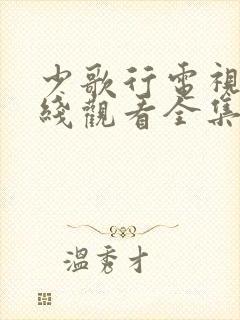 少歌行電視
綫觀看全集
溫秀才